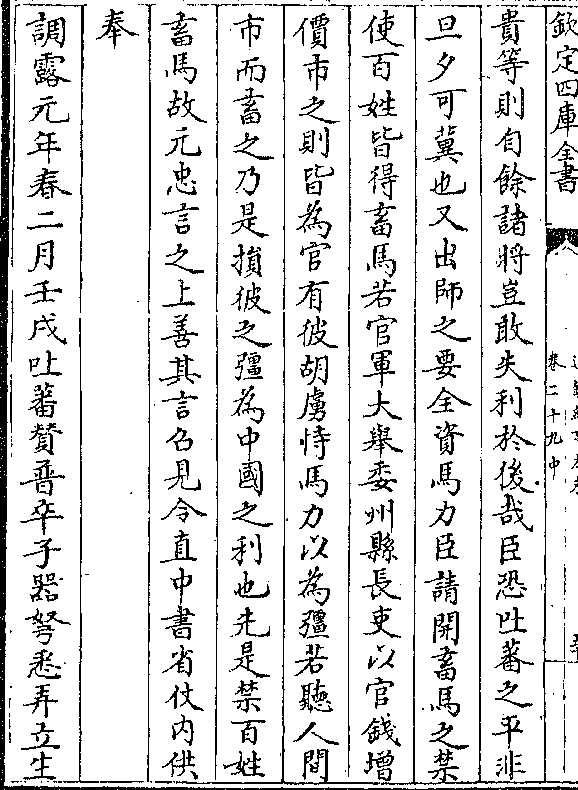 欽定四庫全書
卷二十九中
貴等則自餘諸將豈敢失利於後哉臣恐吐蕃之平非
旦夕可冀也又出師之要全資馬力臣請開畜馬之禁
使百姓皆得畜馬若官軍大舉委州縣長吏以官錢增
價市之則皆為官有彼胡虜恃馬力以為彊若聽人間
市而畜之乃是損彼之彊為中國之利也先是禁百姓
畜馬故元忠言之上善其言召見令直中書省仗內供
奉
調露元年春二月壬戌吐蕃贊普卒子器弩悉弄立生